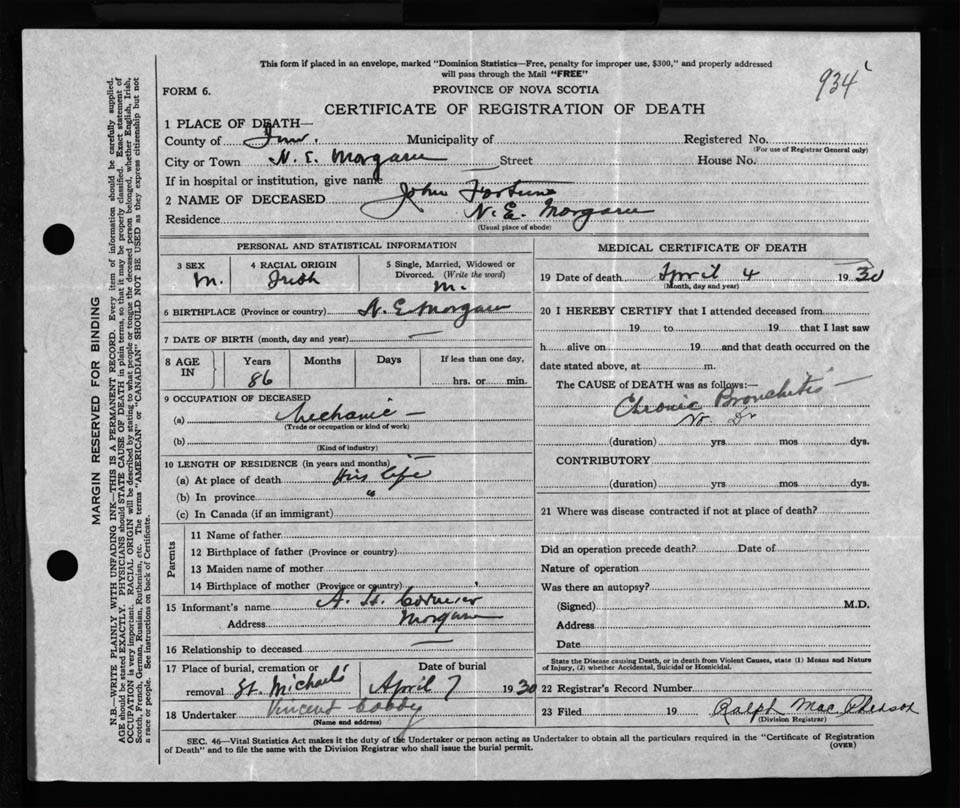 This form if placed in an envelope, marked "Dominion Statistics—Free, penalty for improper use, $300," and properly addressed
will pass through the Mail "FREE"
934
FORM 6.
PROVINCE OF NOVA SCOTIA
CERTIFICATE OF REGISTRATION OF DEATH
1 PLACE OF DEATH—
County of Inv. Municipality of Registered No.
(For use of Registrar General only)
City or Town N. E. Margaree Street House No.
If in hospital or institution, give name
2 NAME OF DECEASED John Fortune
Residence N. E. Margaree
(Usual place of abode)
PERSONAL AND STATISTICAL INFORMATION
3 SEX 4 RACIAL ORIGIN 5 Single, Married, Widowed or
Divorced. (Write the word)
M. Irish M.
6 BIRTHPLACE (Province or country) N. E. Margaree
7 DATE OF BIRTH (month, day and year) —
8 AGE IN Years Months Days If less than one day,
86 hrs. or min.
9 OCCUPATION OF DECEASED
(a) Mechanic —
(Trade or occupation or kind of work)
(b)
(Kind of industry)
10 LENGTH OF RESIDENCE (in years and months)
(a) At place of death His life
(b) In province "
(c) In Canada (if an immigrant)
Parents
11 Name of father
12 Birthplace of father (Province or country)
13 Maiden name of mother
14 Birthplace of mother (Province or country)
15 Informant's name A. H. Cormier
Address Margaree
16 Relationship to deceased —
17 Place of burial, cremation or Date of burial
removal St. Michael's April 7 1930
18 Undertaker Vincent
(Name and address)
MEDICAL CERTIFICATE OF DEATH
19 Date of death April 4 1930
(Month, day and year)
20 I HEREBY CERTIFY that I attended deceased from
19 to 19 that I last saw
h alive on 19 and that death occurred on the
date stated above, at m.
The CAUSE OF DEATH was as follows:—
Chronic Bronchitis —
No Dr
(duration) yrs mos dys.
CONTRIBUTORY
(duration) yrs mos dys.
21 Where was disease contracted if not at place of death?
Did an operation precede death? Date of
Nature of operation
Was there an autopsy?
(Signed) M.D.
Address
Date
State the Disease causing Death, or in death from Violent Causes, state (1) Means and Nature
of Injury, (2) whether Accidental, Suicidal or Homicidal.
22 Registrar's Record Number
23 Filed 19 Ralph MacPherson
(Division Registrar)
SEC. 46—Vital Statistics Act makes it the duty of the Undertaker or person acting as Undertaker to obtain all the particulars required in the "Certificate of Registration
of Death" and to file the same with the Division Registrar who shall issue the burial permit.
(OVER)
MARGIN RESERVED FOR BINDING
N.B.—WRITE PLAINLY WITH UNFADING INK—THIS IS A PERMANENT RECORD. Every item of information should be carefully supplied.
AGE should be stated EXACTLY. PHYSICIANS should STATE CAUSE OF DEATH in plain terms, so that it may be properly classified. Exact statement of
OCCUPATION is very important. RACIAL ORIGIN will be described by stating to what people or tongue the deceased person belonged, whether English, Irish,
Scotch, French, German, Russian, Ruthenian, etc. The terms "AMERICAN" or "CANADIAN" SHOULD NOT BE USED as they express citizenship but not
a race or people. See instructions on back of Certificate.